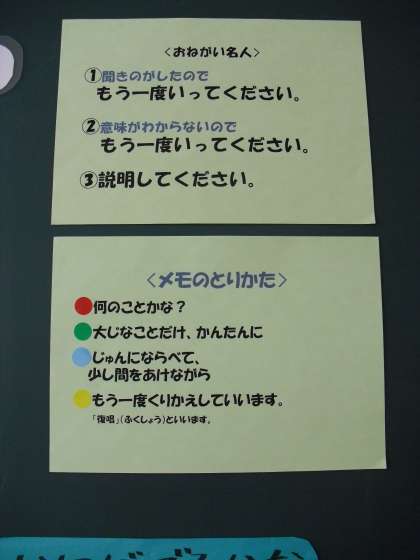 〈おねがい名人〉
①聞きのがしたので
もう一度いってください。
②意味がわからないので
もう一度いってください。
③説明してください。
〈メモのとりかた〉
何のことかな？
大じなことだけ、かんたんに
じゅんにならべて、
少し間をあけながら
もう一度くりかえしていいます。
「復唱」(ふくしょう)といいます。